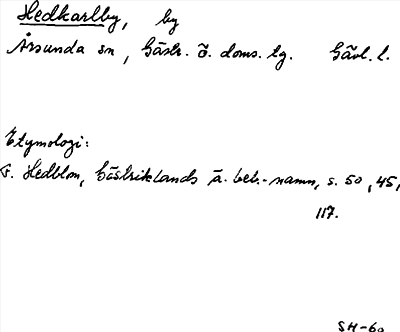 Hedkarlby, by
Årsunda sn, Gästr. Ö. doms. lg. Gävl. l.
Etymologi:
F. Hedblom, Gästriklands ä. beb.-namn, s. 50, 45,
117.
SH-60